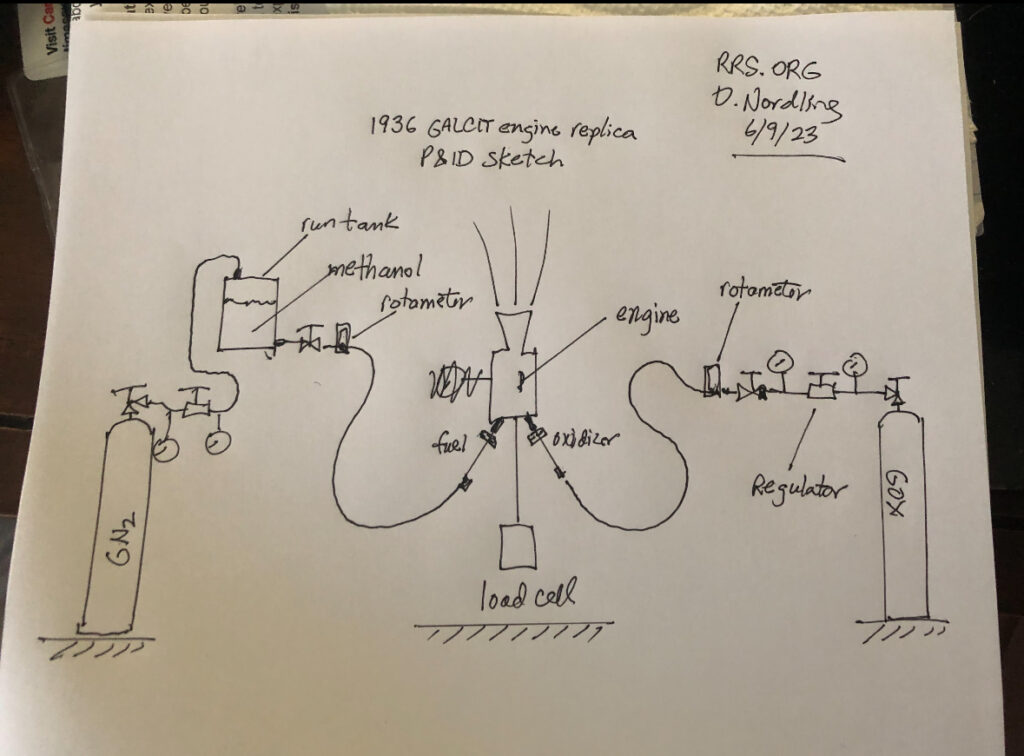 Visit Car
times
RRS.ORG
D. Nordling
6/9/23
1936 GALCIT engine replica
P&ID sketch
run tank
methanol
rotameter
rotameter
engine
fuel
oxidizer
Regulator
GN2
GOX
load cell